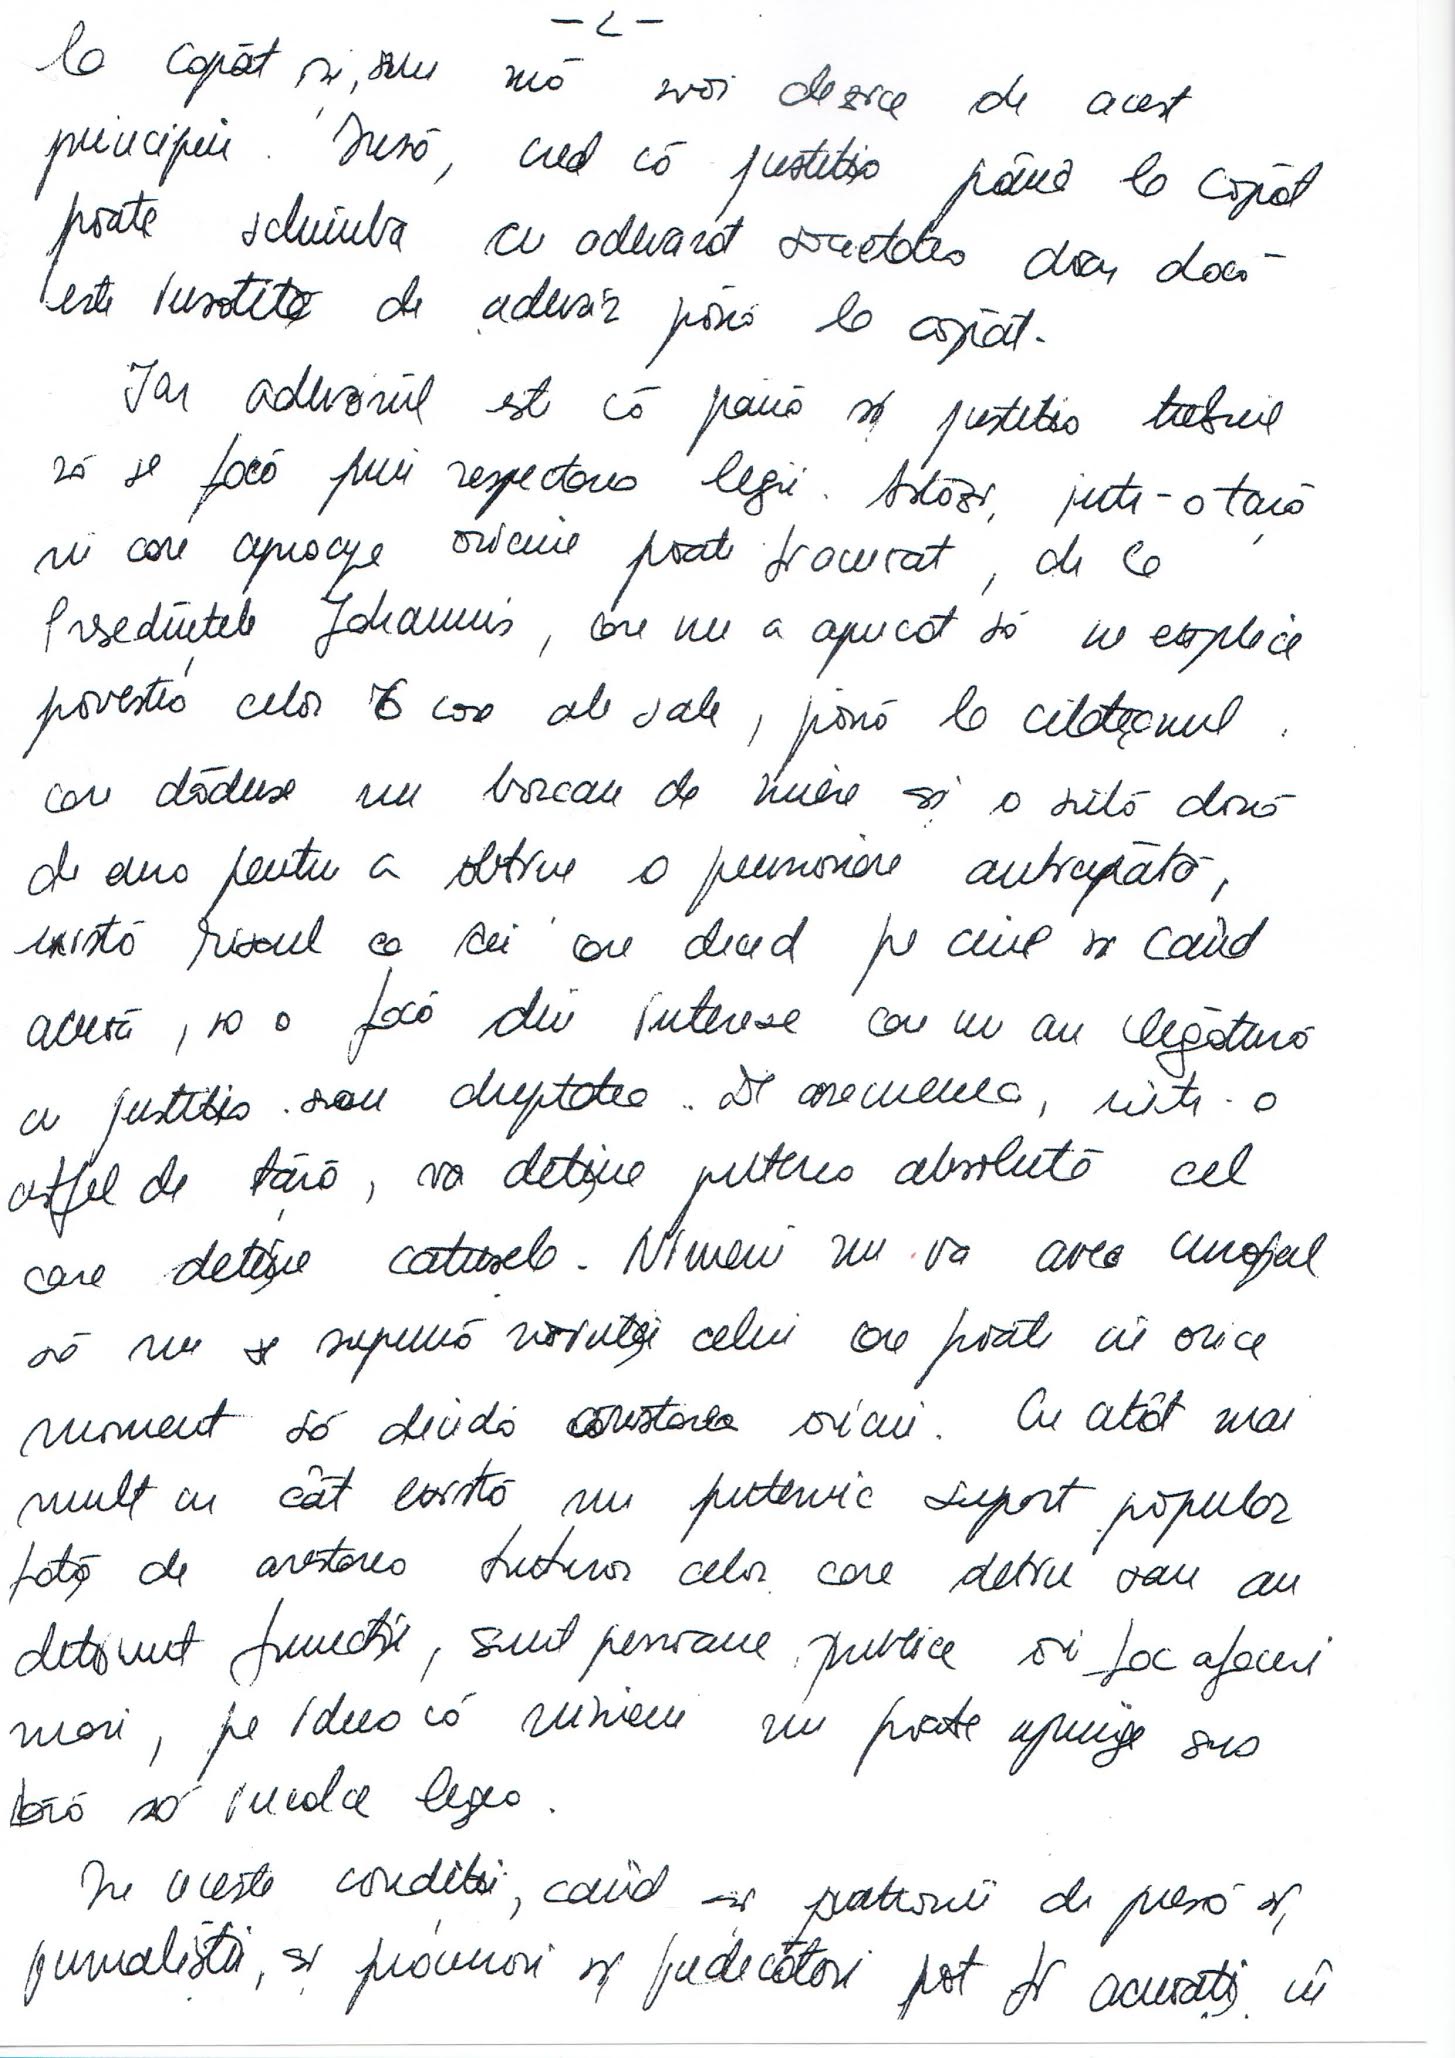 -2-
la capăt și, nu mă voi dezice de acest
principiu. Însă, cred că justiția până la capăt
poate schimba cu adevărat societatea doar dacă
este însoțită de adevăr până la capăt.
Iar adevărul este că până și justiția trebuie
să se facă prin respectarea legii. Astăzi, într-o țară
în care aproape oricine poate fi acuzat, de la
Președintele Iohannis, care nu a apucat să ne explice
povestea celor 6 case ale sale, până la cetățeanul
care dăduse un borcan de miere și o sută două
de euro pentru a obține o pensionare anticipată,
există riscul ca cei care decid pe cine și când
acuză, să o facă din interese care nu au legătură
cu justiția sau dreptatea. De asemenea, într-o
astfel de țară, va deține puterea absolută cel
care deține cătușele. Nimeni nu va avea curajul
să nu se supună voinței celui care poate în orice
moment să decidă arestarea oricui. Cu atât mai
mult cu cât există un puternic suport popular
față de arestarea tuturor celor care dețin sau au
deținut funcții, sunt persoane publice ori fac afaceri
mari, pe ideea că nimeni nu poate ajunge sus
fără să încalce legea.
În aceste condiții, când și patronii de presă și
jurnaliștii, și procurori și judecători pot fi acuzați în